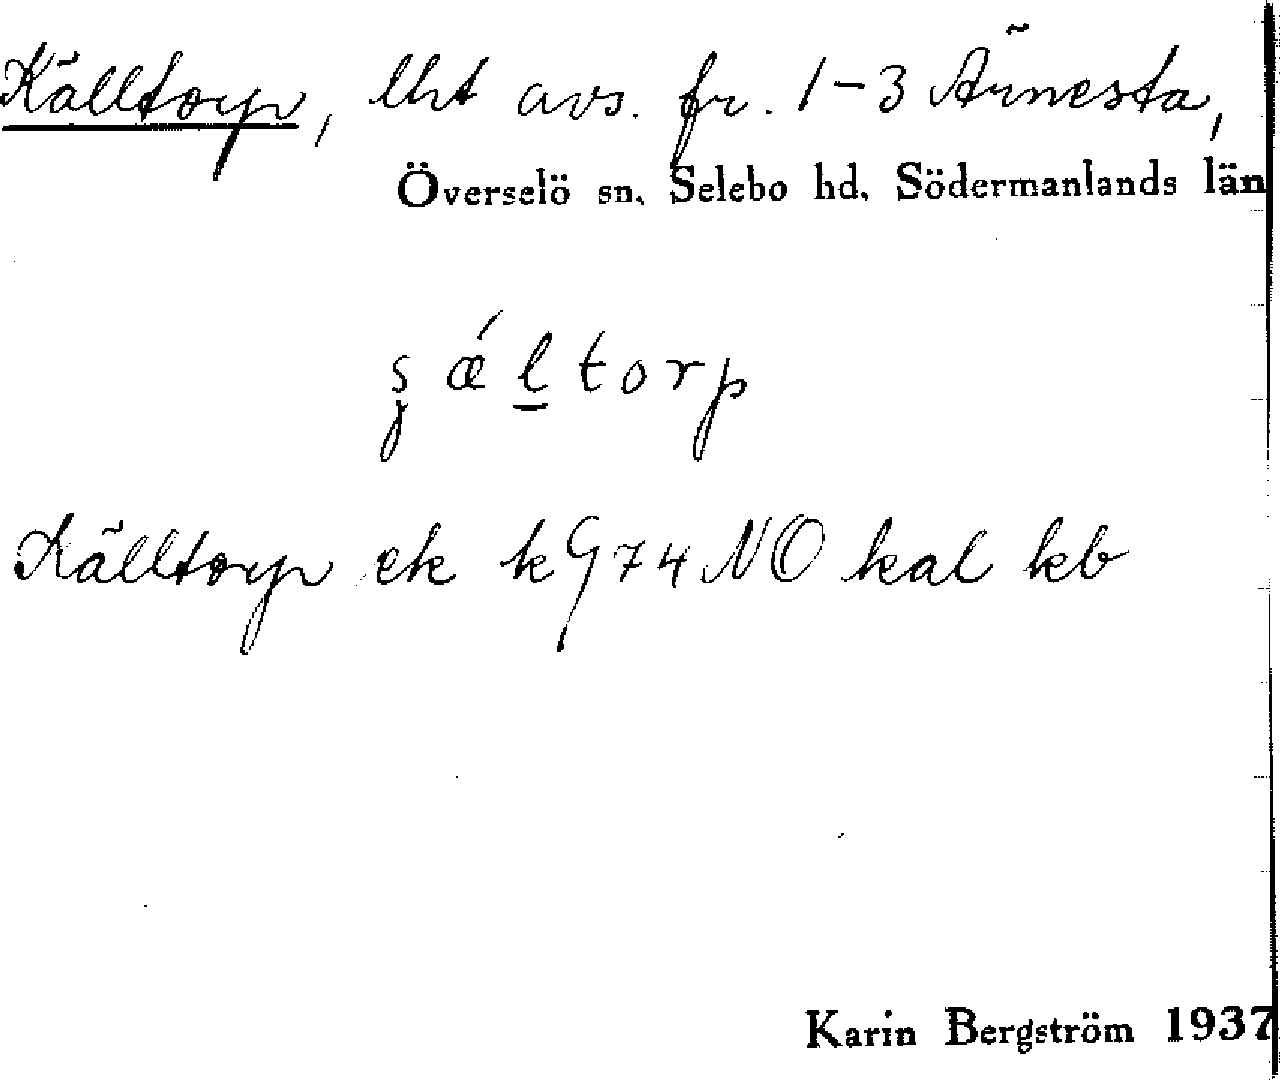 Källtorp, lht avs. fr. 1-3 Ärnesta,
Överselö sn, Selebo hd, Södermanlands län
ǽ l̲ t o r p
Källtorp ek kG 74 NO kal kb
Karin Bergström 1937